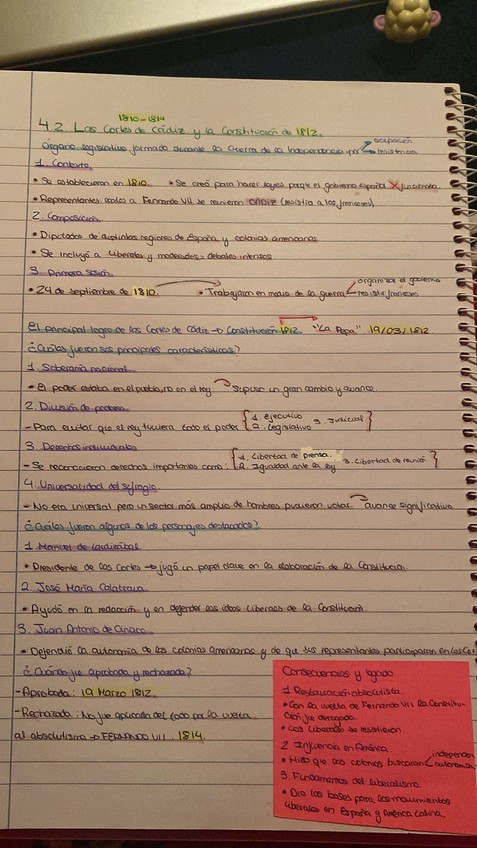 1810-1814
4.2. Las Cortes de Cádiz y la Constitución de 1812.
Órgano legislativo formado durante la Guerra de la Independencia por ocupación
resistencia
1. Contexto
• Se establecieron en 1810. • Se creó para hacer leyes porque el gobierno español X funcionaba
• Representantes a Fernando VII se reunieron CÁDIZ (resistía a los franceses)
2. Composición
• Diputados de distintas regiones de España y colonias americanas
• Se incluyó a liberales y moderados = debates intensos
3. Primera sesión
• 24 de septiembre de 1810. • Trabajaron en medio de la guerra organizar el gobierno
resistir franceses
El principal logro de las Cortes de Cádiz → Constitución 1812. "La Pepa" 19/03/1812
¿Cuáles fueron sus principales características?
1. Soberanía nacional
• El poder estaba en el pueblo, no en el rey Supuso un gran cambio y avance.
2. División de poderes
- Para evitar que el rey tuviera todo el poder { 1. Ejecutivo 3. Judicial }
2. Legislativo
3. Derechos individuales
- Se reconocieron derechos importantes como: { 1. Libertad de prensa. 3. Libertad de reunión }
2. Igualdad ante la ley
4. Universalidad del sufragio
- No era universal pero un sector más amplio de hombres pudieron votar avance significativo
¿Cuáles fueron algunos de los personajes destacados?
1. Manuel de
• Presidente de las Cortes → jugó un papel clave en la elaboración de la Constitución.
2. José María Calatrava
• Ayudó en la redacción y en defender las ideas liberales de la Constitución
3. Juan Antonio de
• Defendió la autonomía de las colonias americanas y de que sus representantes participaran en las Cor
¿Cuándo fue aprobada y rechazada?
- Aprobada: 19 Marzo 1812.
- Rechazada: No fue aplicada del todo por la vuelta
al absolutismo → FERNANDO VII. 1814.
Consecuencias y legado
1. Restauración absolutista.
• Con la vuelta de Fernando VII la Constitu-
ción fue derogada.
• Los liberales se resistieron
2. Influencia en América.
• Hizo que las colonias buscaran independen
autonomía
3. Fundamentos del liberalismo.
• Dio las bases para los movimientos
liberales en España y América Latina.